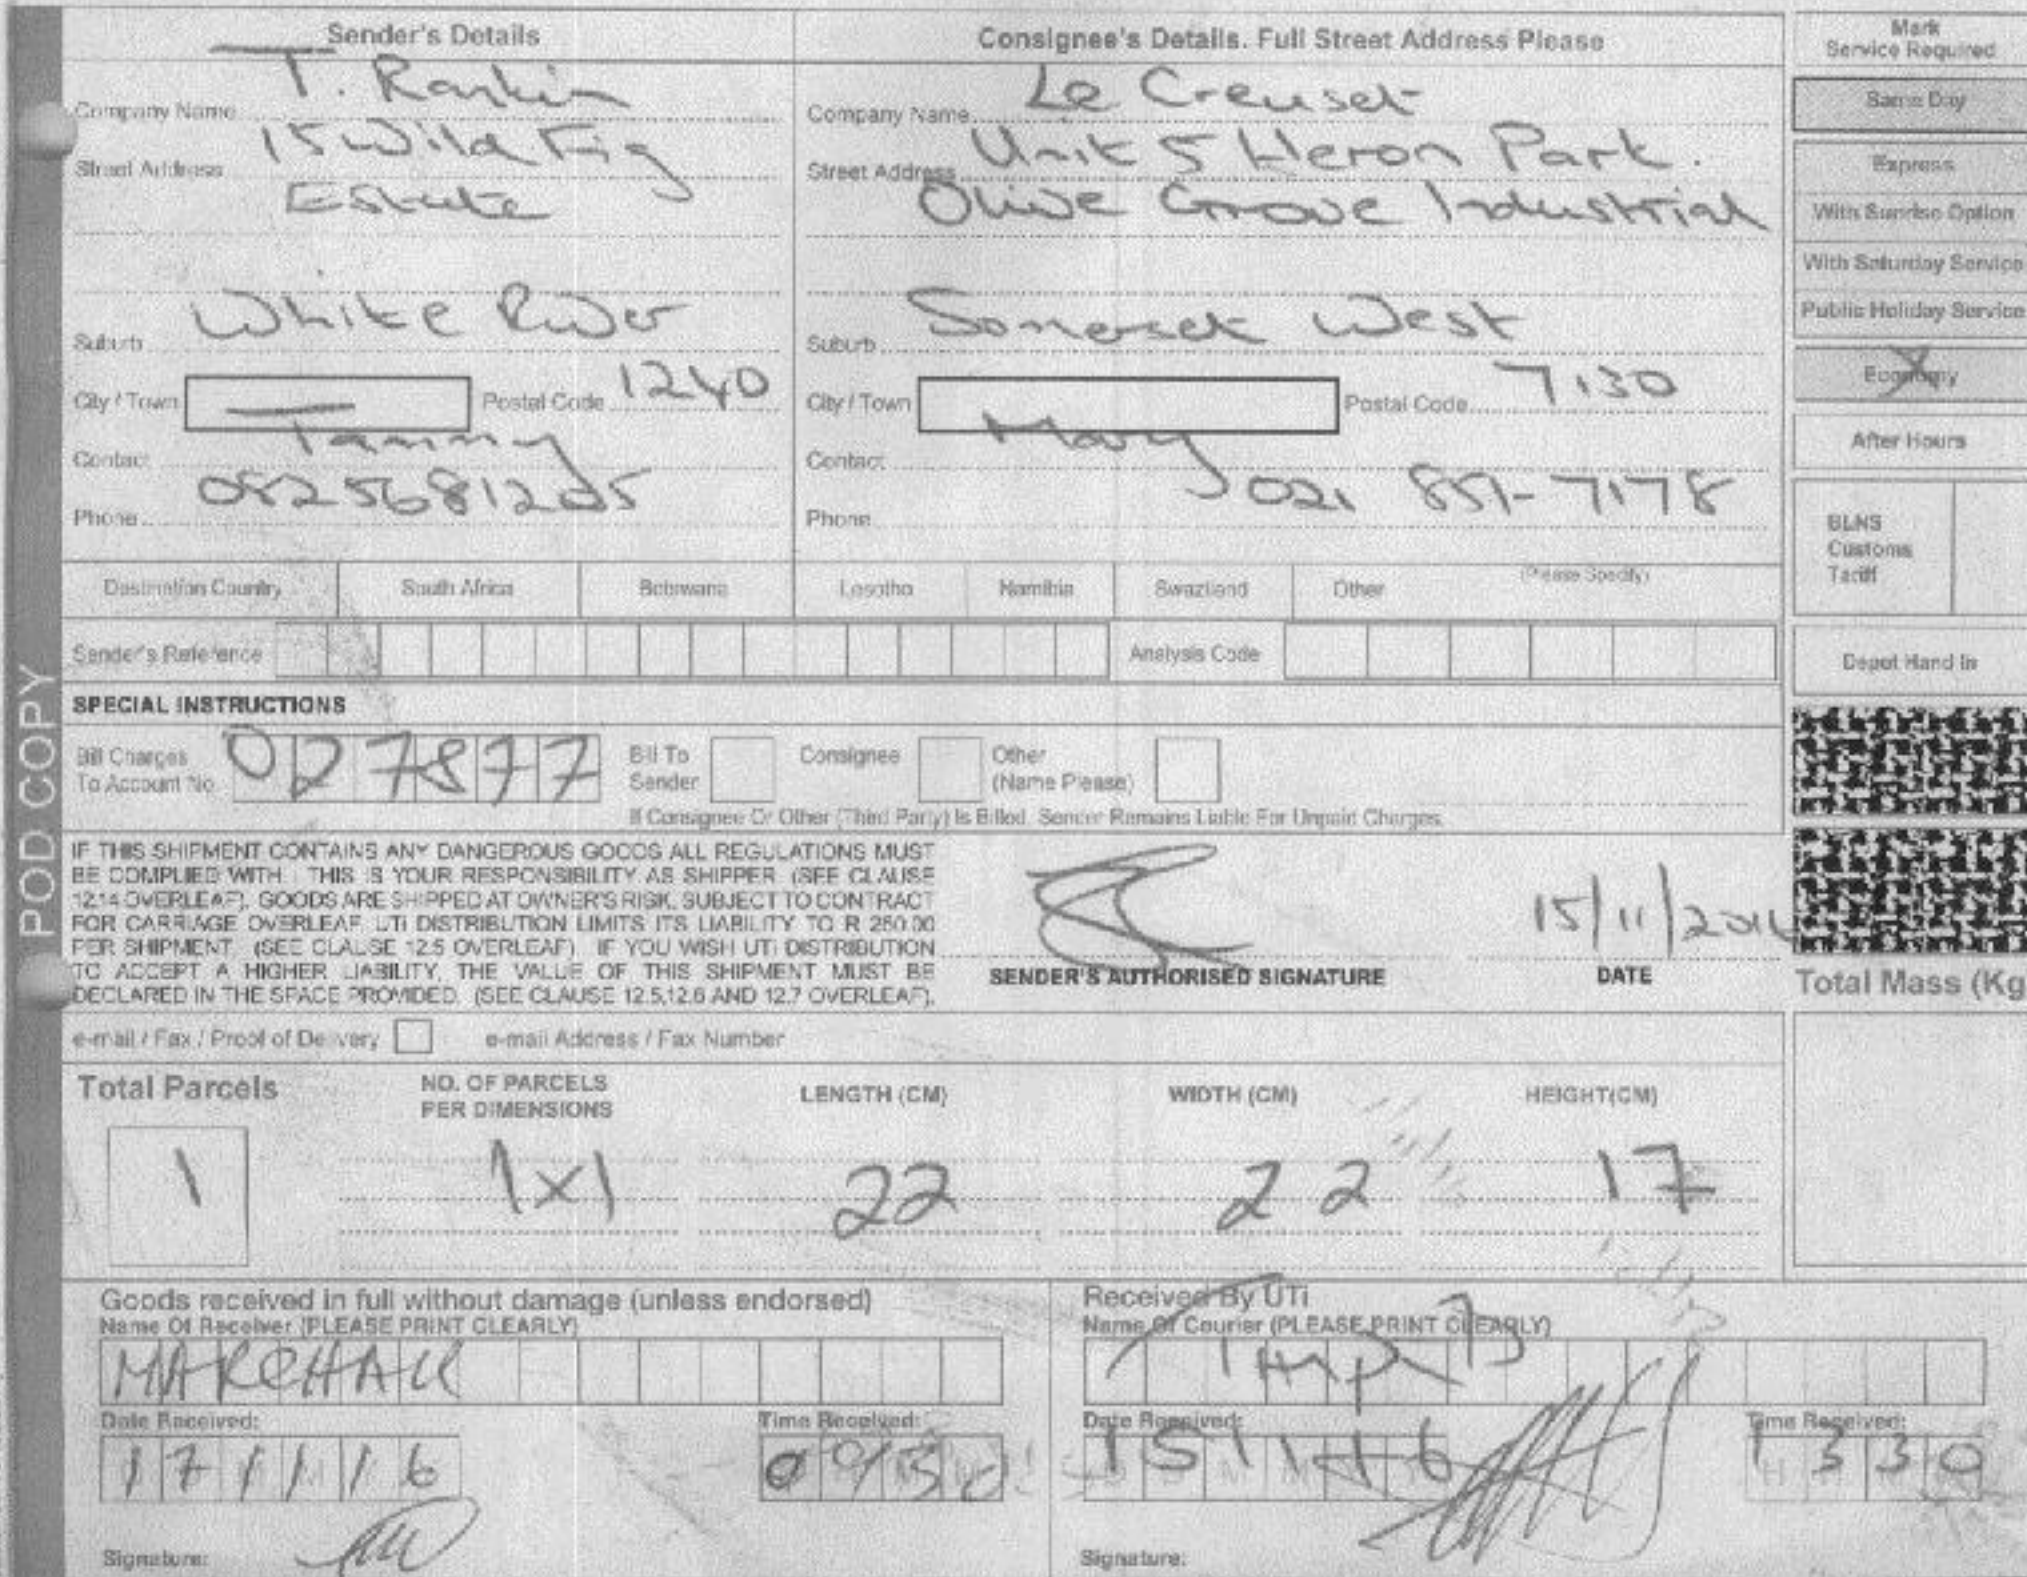 Sender's Details
T. Rankin
Company Name
15 Wild Fig
Street Address
Estate
White River
Suburb
City / Town
Postal Code 1240
Contact Tammy
Phone 0825681205
Consignee's Details. Full Street Address Please
Company Name Le Creuset
Street Address Unit 5 Heron Park.
Olive Grove Industrial
Suburb Somerset West
City / Town
Postal Code 7130
Contact Mary
Phone 021 851-7178
Mark
Service Required
Same Day
Express
With Sunrise Option
With Saturday Service
Public Holiday Service
Economy X
After Hours
BLNS
Customs
Tariff
Depot Hand In
Destination Country South Africa Botswana Lesotho Namibia Swaziland Other (Please Specify)
Sender's Reference Analysis Code
SPECIAL INSTRUCTIONS
Bill Charges
To Account No 027877
Bill To
Sender
Consignee
Other
(Name Please)
If Consignee Or Other (Third Party) Is Billed, Sender Remains Liable For Unpaid Charges.
POD COPY
IF THIS SHIPMENT CONTAINS ANY DANGEROUS GOODS ALL REGULATIONS MUST
BE COMPLIED WITH. THIS IS YOUR RESPONSIBILITY AS SHIPPER (SEE CLAUSE
12.14 OVERLEAF). GOODS ARE SHIPPED AT OWNER'S RISK, SUBJECT TO CONTRACT
FOR CARRIAGE OVERLEAF. UTi DISTRIBUTION LIMITS ITS LIABILITY TO R 250.00
PER SHIPMENT. (SEE CLAUSE 12.5 OVERLEAF) IF YOU WISH UTi DISTRIBUTION
TO ACCEPT A HIGHER LIABILITY, THE VALUE OF THIS SHIPMENT MUST BE
DECLARED IN THE SPACE PROVIDED. (SEE CLAUSE 12.5,12.6 AND 12.7 OVERLEAF).
SENDER'S AUTHORISED SIGNATURE
15/11/2016
DATE
Total Mass (Kg
e-mail / Fax / Proof of Delivery e-mail Address / Fax Number
Total Parcels
NO. OF PARCELS
PER DIMENSIONS
LENGTH (CM) WIDTH (CM) HEIGHT(CM)
1 1x1 22 22 17
Goods received in full without damage (unless endorsed)
Name Of Receiver (PLEASE PRINT CLEARLY)
Date Received: Time Received:
171116 0930
Signature:
Received By UTi
Name Of Courier (PLEASE PRINT CLEARLY)
Date Received: Time Received:
151116 1330
Signature: